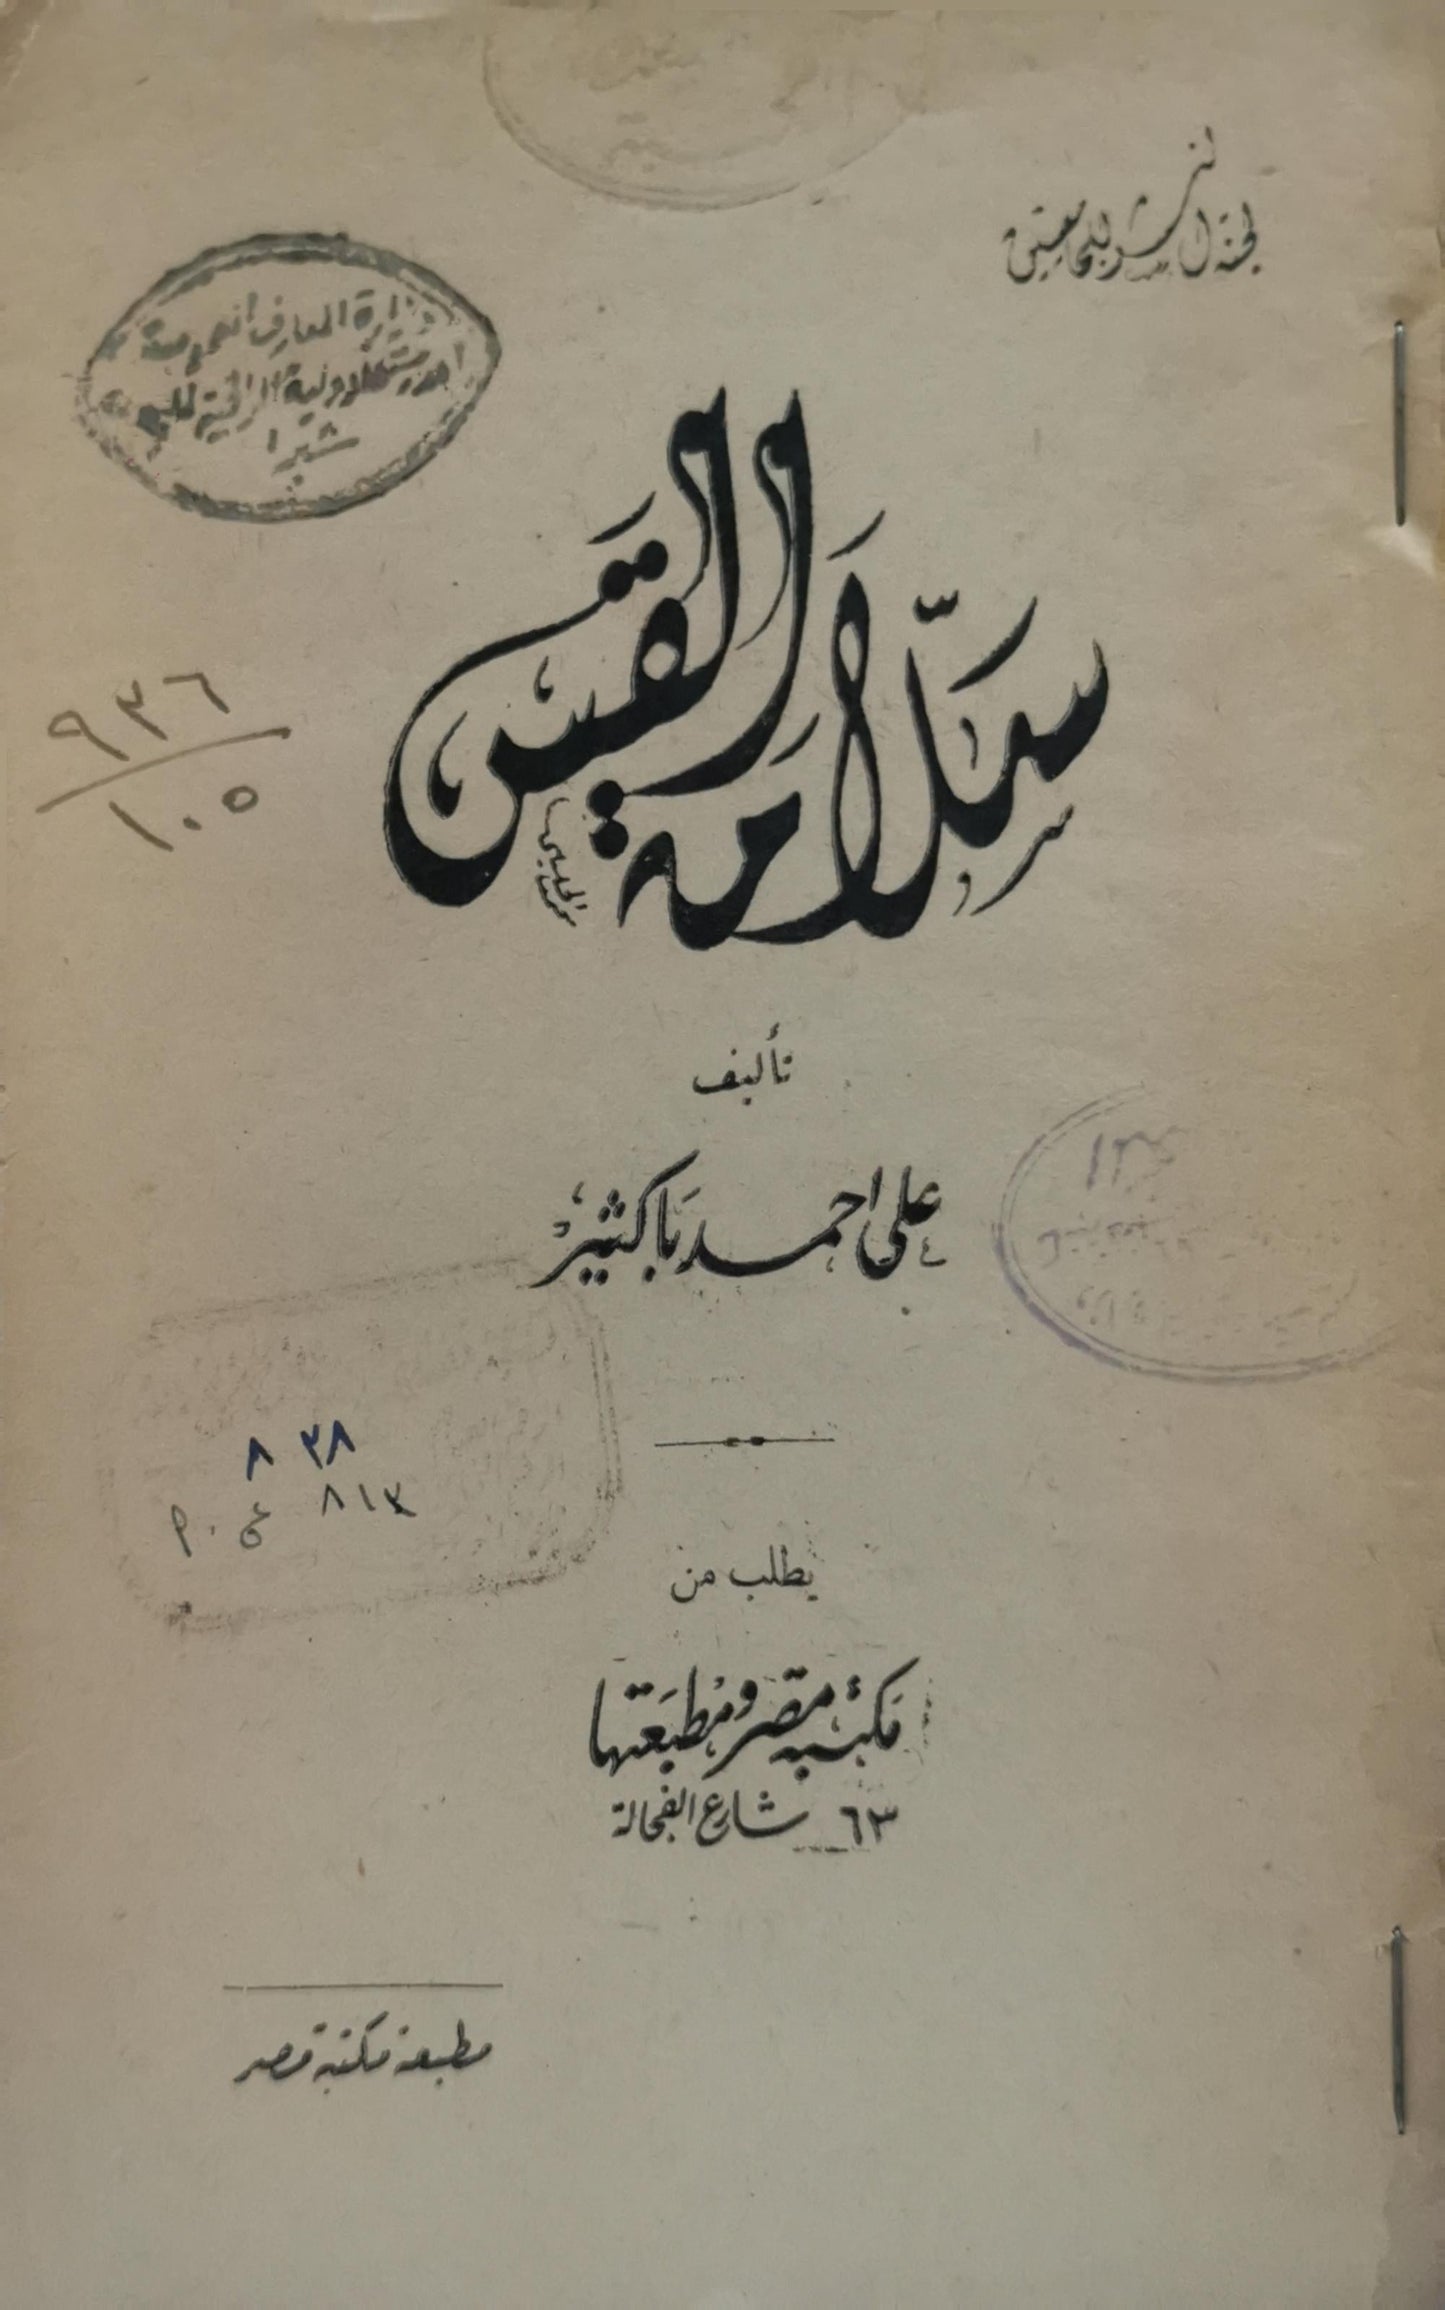 لجنة النشر للجامعيين
وزارة المعارف العمومية
شبرا
سلّامة القس
٩٣٦
١٠٥
تأليف
على احمد باكثير
٨ ٣٨
٨١٣
ع . م
يطلب من
مكتبة مصر ومطبعتها
٦٣ شارع الفجالة
مطبعة مكتبة مصر